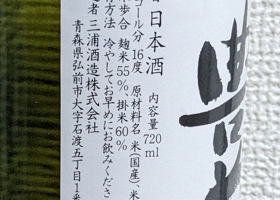 日本酒 内容量720ml
ール分 16度 原材料名 米(国産)、米
歩合 麹米55%、掛米60%
方法 冷やしてお早めにお飲みくださ
者 三浦酒造株式会社
青森県弘前市大字石渡五丁目1番